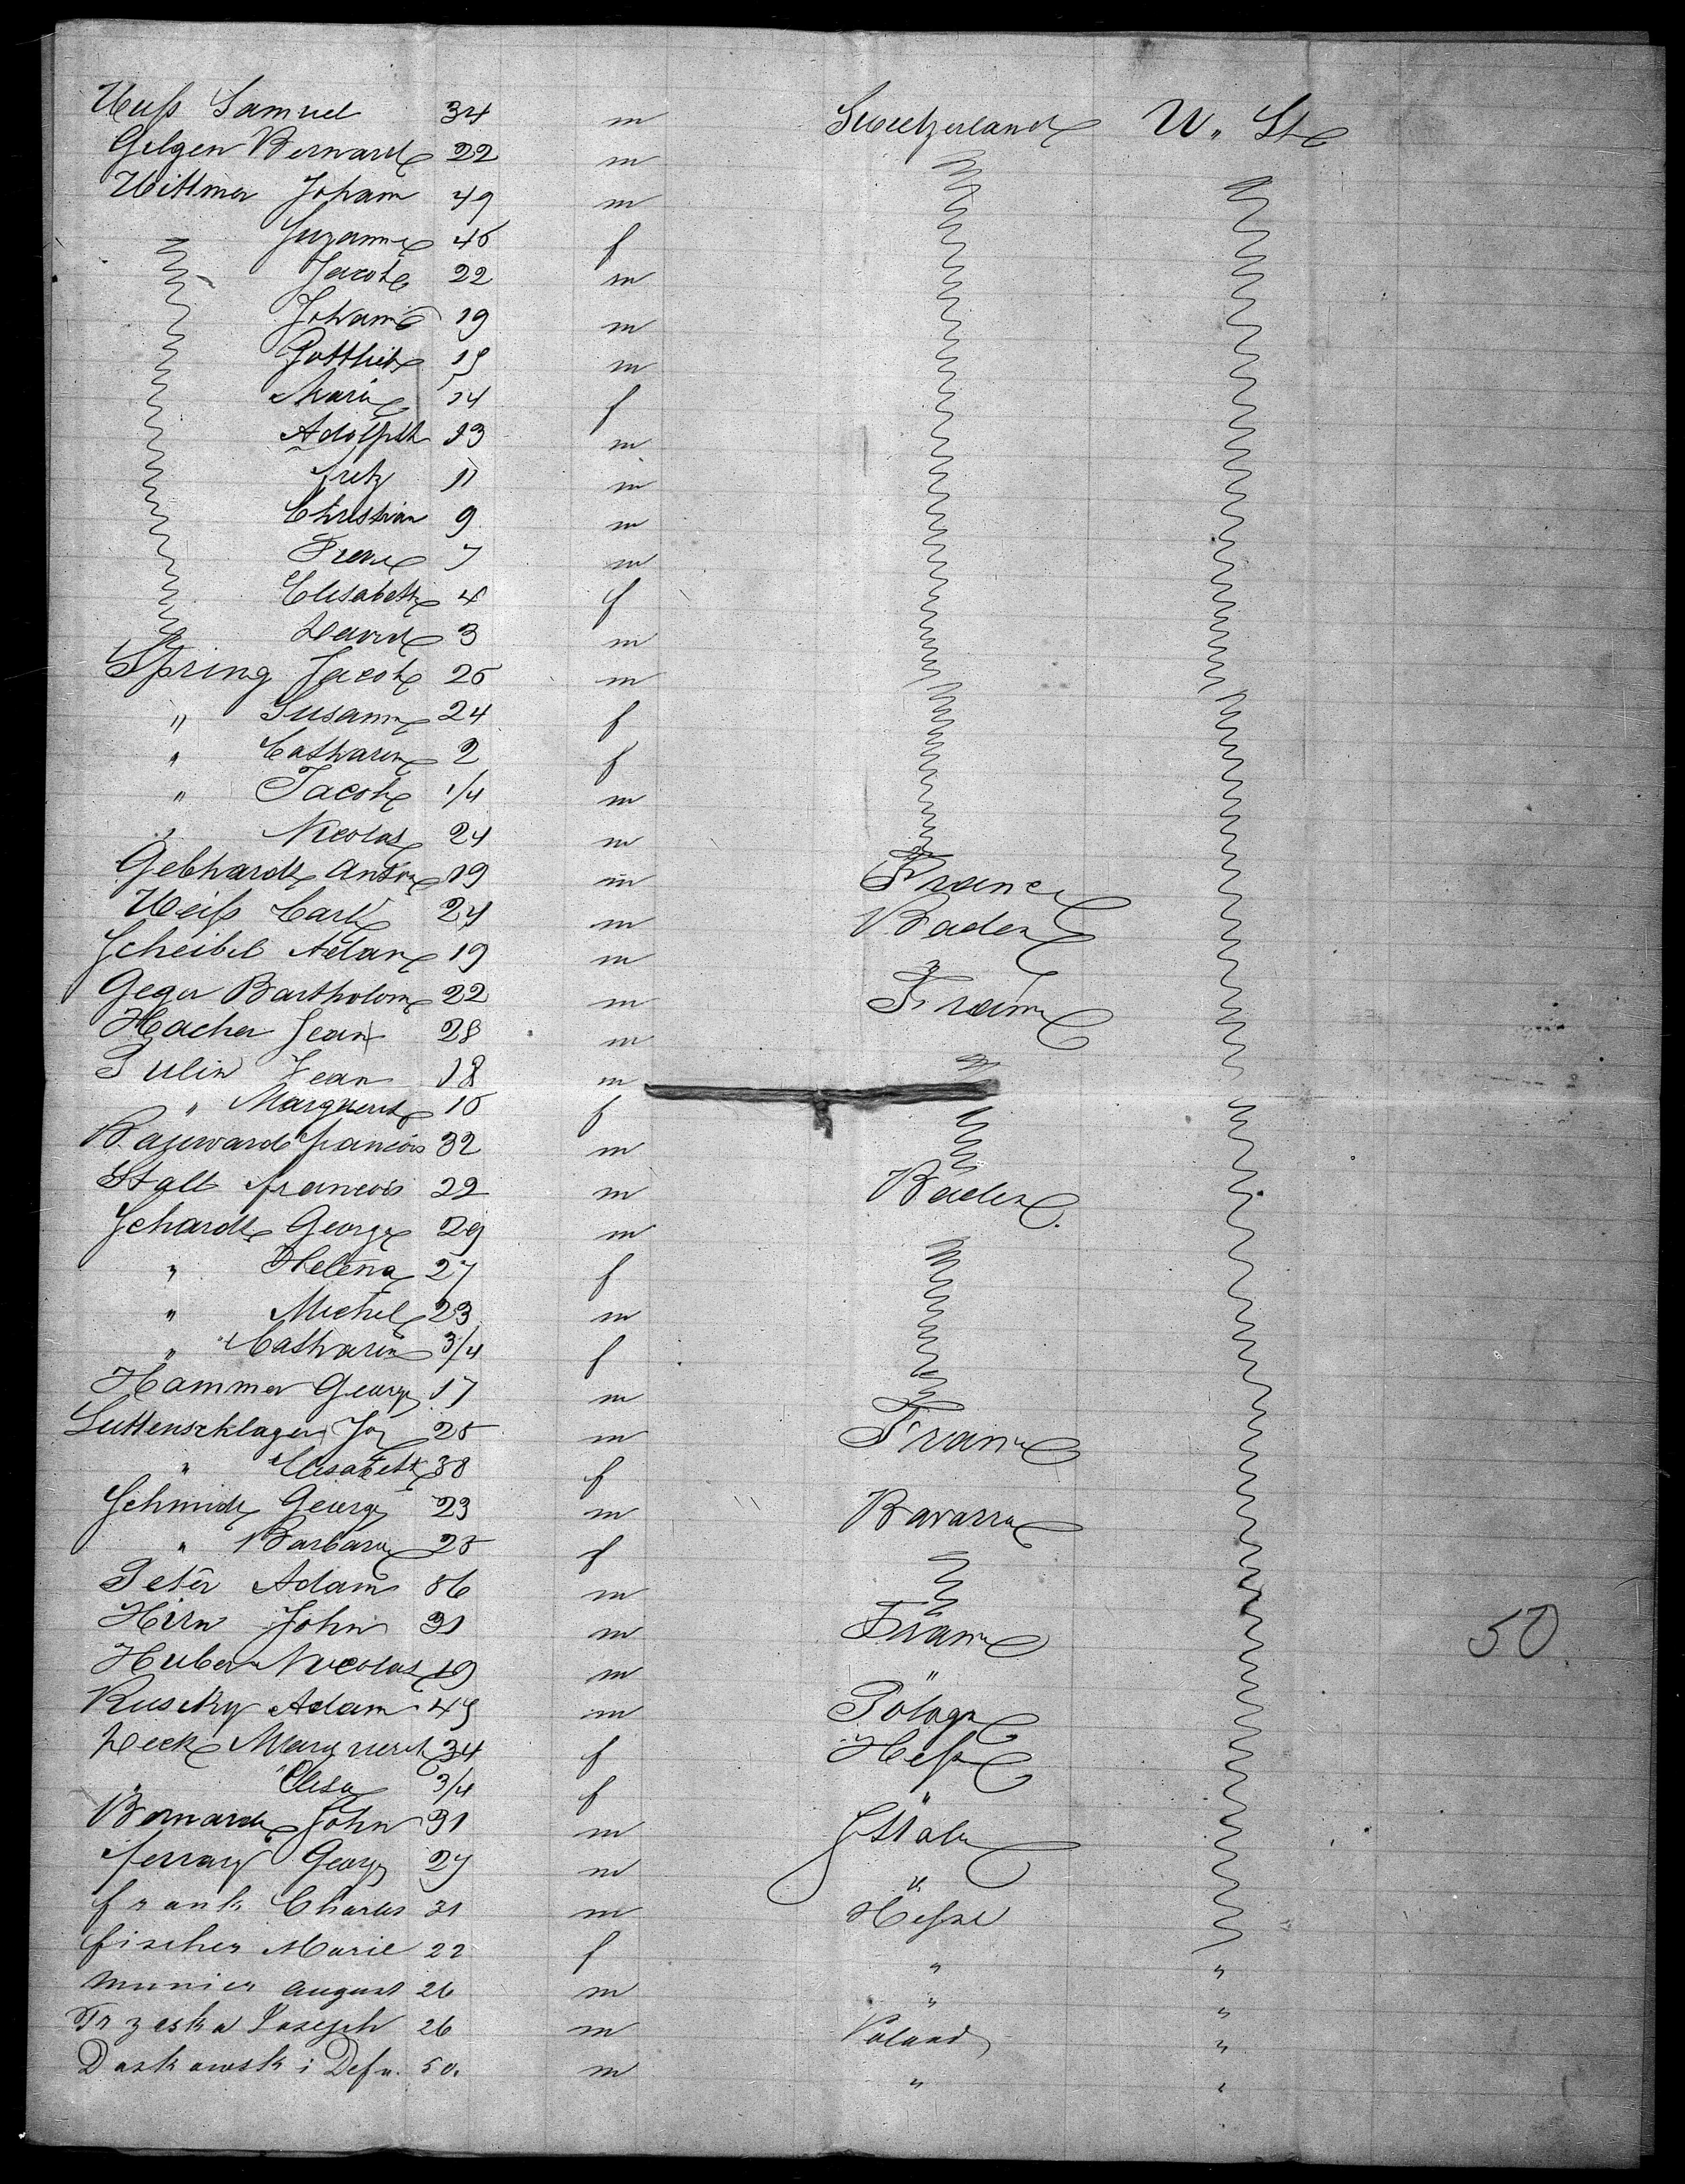 Samuel 34 m Sweitzerland U. St
Gilgen Bernard 22 m
Wittmer Johann 49 m
Suzanne 45 f
Jacob 22 m
Johann 19 m
Gottlieb 15 m
Marie 14 f
Adolph 13 m
Fritz 11 m
Christian 9 m
7 m
Elisabeth 4 f
David 3 m
Spring Jacob 25 m
" Susann 24 f
" Catharin 2 f
" Jacob 1/4 m
" Nicolas 24 m
Gebhardt Anton 19 m France
Weiss Carl 24 m Baden
Scheibel Adam 19 m "
Geger Bartholom 22 m France
Hacher Jean 28 m
Julin Jean 18 m
" Marguerit 15 f
Francois 32 m
Stalt Francois 22 m Baden
Schardt George 29 m
" Helena 27 f
" Michel 23 m
" Catharin 3/4 f
Hammer George 17 m
Luttenscklager Jos 25 m France
" Elisabeth 38 f
Schmidt George 23 m Bavaria
" Barbara 25 f
Peter Adam 56 m
Hirn John 31 m France 50
Huber Nicolas 19 m "
Ruscky Adam 45 m Pologn
Heck Marguerit 34 f Hesse
" Elisa 3/4 f "
Bernard John 31 m Ittaly
Ferrary George 27 m "
Frank Charles 31 m Hesse
Fischer Marie 22 f " "
Munier August 26 m " "
Trzeska Joseph 26 m Poland "
Daskowski Defn. 50. m " "